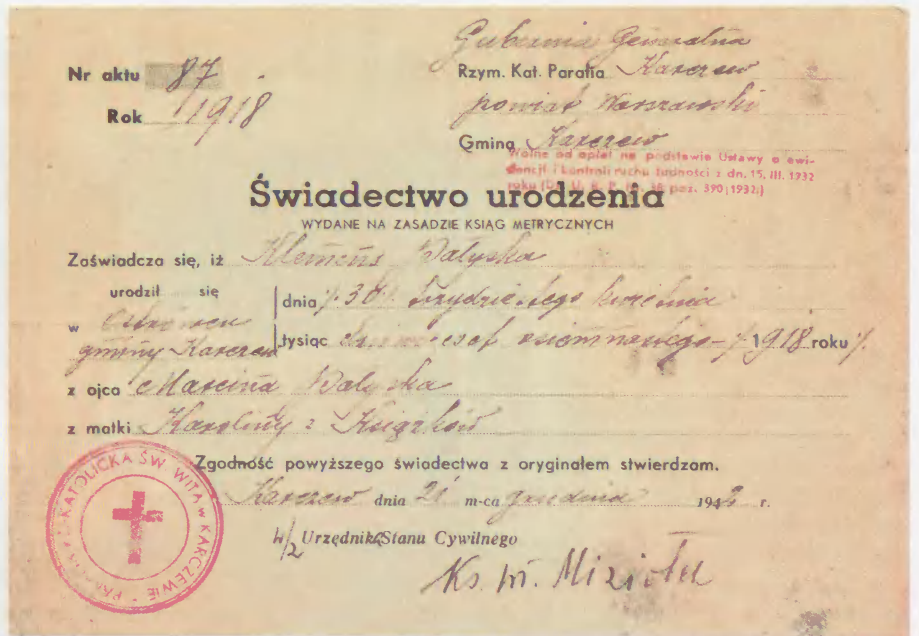 Gubernia Generalna
Nr aktu 87.
Rzym. Kat. Parafia Karczew
Rok 1918
powiat Warszawski
Gmina Karczew
Wolne od opłat na podstawie Ustawy o ewi-
dencji i kontroli ruchu ludności z dn. 15. III. 1932
roku (Dz. U. R. P. poz. 390/1932)
Świadectwo urodzenia
WYDANE NA ZASADZIE KSIĄG METRYCZNYCH
Zaświadcza się, iż Klemens Dałyska
urodził się
dnia /.30/. trzydziestego kwietnia
w gminy Karczew
tysiąc dziewięćset osiemnastego -/-1918 roku /.
z ojca Marcina Dałyska
z matki Karoliny z Książków
Zgodność powyższego świadectwa z oryginałem stwierdzam.
Karczew dnia 21 m-ca grudnia 1942 r.
w/z Urzędnika Stanu Cywilnego
Ks. W. Miziołek
KATOLICKA ŚW. WITA w KARCZEWIE